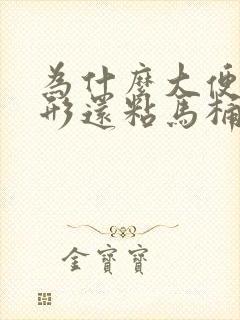 為什麼大便
形還粘馬桶
金寶寶